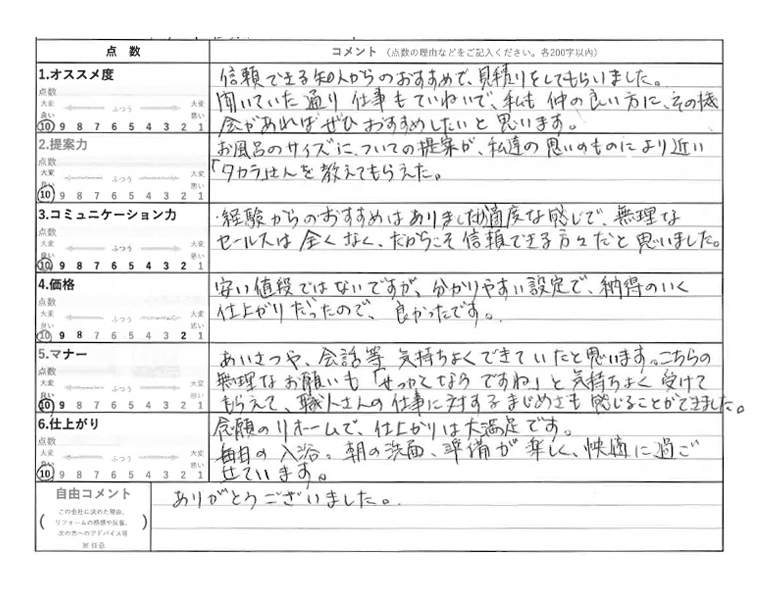 点数 コメント (点数の理由などをご記入ください。各200字以内)
1.オススメ度
点数
大変良い ふつう 大変悪い
10 9 8 7 6 5 4 3 2 1
信頼できる知人からのおすすめで、見積りをしてもらいました。
聞いていた通り 仕事もていねいで、私も 仲の良い方に、その機
会があればぜひおすすめしたいと思います。
2.提案力
点数
大変良い ふつう 大変悪い
10 9 8 7 6 5 4 3 2 1
お風呂のサイズに、ついての提案が、私達の思いのものにより近い
「タカラ」さんを教えてもらえた。
3.コミュニケーション力
点数
大変良い ふつう 大変悪い
10 9 8 7 6 5 4 3 2 1
・経験からのおすすめはありましたが適度な感じで、無理な
セールスは全くなく、だからこそ信頼できる方々だと思いました。
4.価格
点数
大変良い ふつう 大変悪い
10 9 8 7 6 5 4 3 2 1
安い値段ではないですが、分かりやすい設定で、納得のいく
仕上がりだったので、良かったです。
5.マナー
点数
大変良い ふつう 大変悪い
10 9 8 7 6 5 4 3 2 1
あいさつや、会話等 気持ちよくできていたと思います。こちらの
無理なお願いも「せっかくなら ですね」と気持ちよく受けて
もらえて、職人さんの仕事に対するまじめさも感じることができました。
6.仕上がり
点数
大変良い ふつう 大変悪い
10 9 8 7 6 5 4 3 2 1
念願のリホームで、仕上がりは大満足です。
毎日の入浴。朝の洗面、準備が楽しく、快適に過ご
せています。
自由コメント
(この会社に決めた理由、
リフォームの感想や反省、
次の方へのアドバイス等)
※任意
ありがとうございました。